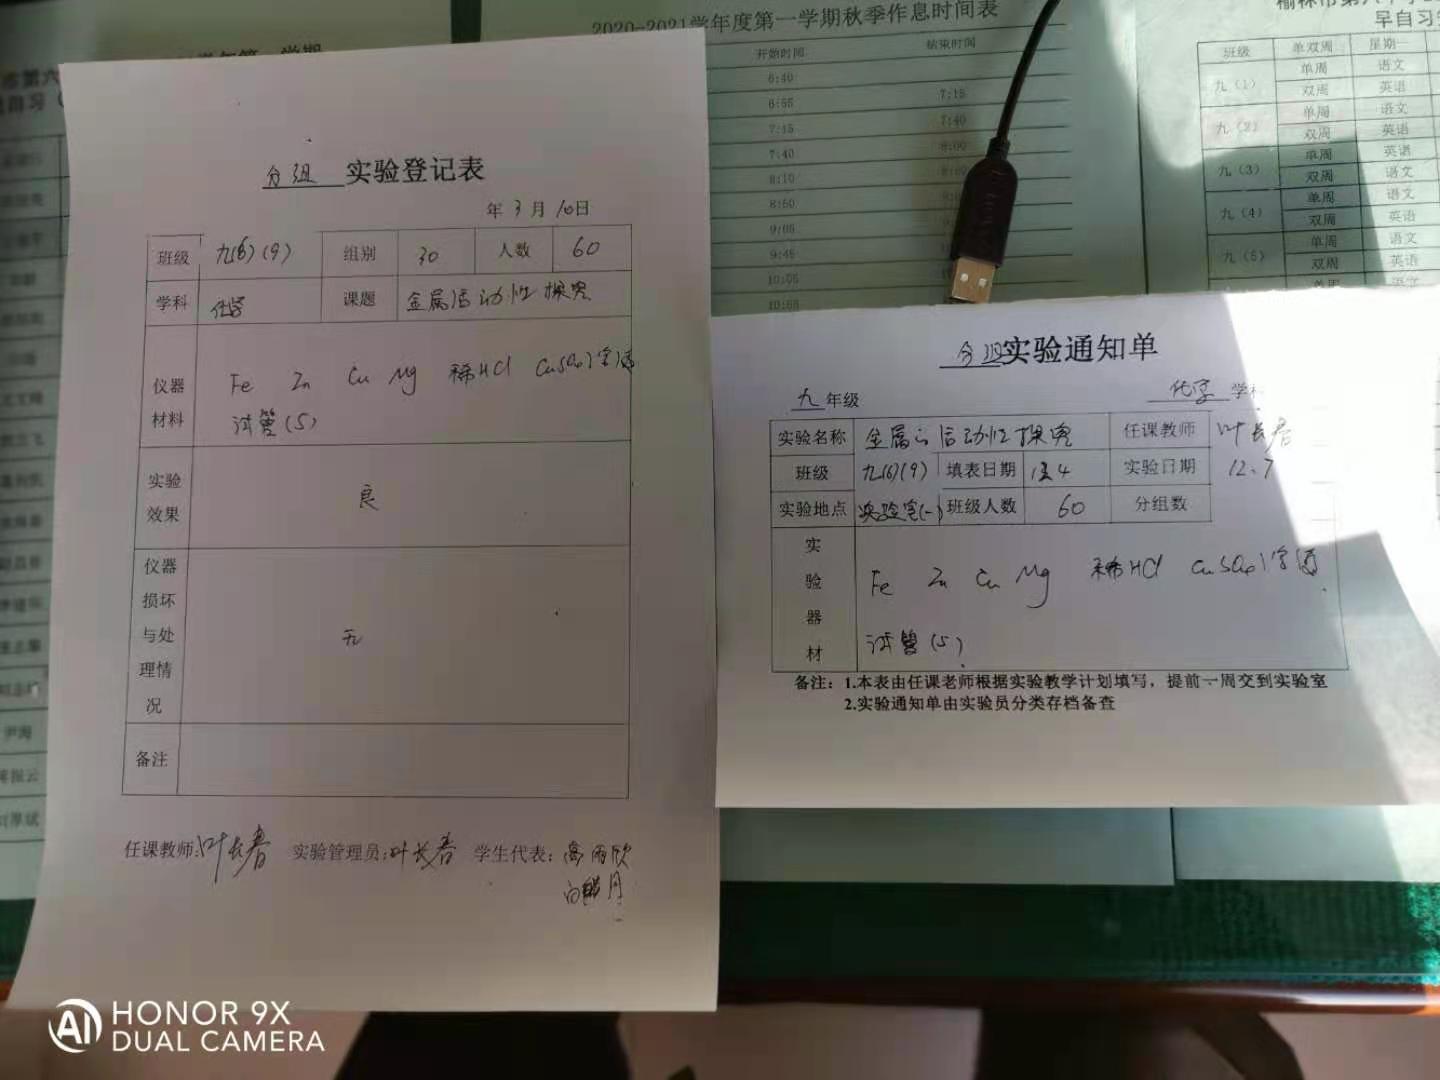 2020-2021学年度第一学期秋季作息时间表
开始时间 结束时间
6:40
6:55 7:15
7:15 7:40
7:40 8:00
8:10
8:50
9:05
9:45
10:05
10:55
早自习
班级 单双周 星期一
九(1) 单周 语文
双周 英语
九(2) 单周 语文
双周 英语
九(3) 单周 英语
双周 语文
九(4) 单周 语文
双周 英语
九(5) 单周 语文
双周 英语
分组 实验登记表
年 3 月 10 日
班级 九(6)(9) 组别 30 人数 60
学科 化学 课题 金属活动性探究
仪器材料 Fe Zn Cu Mg 稀HCl CuSO4溶液
试管(5)
实验效果 良
仪器损坏与处理情况 无
备注
任课教师:叶长春 实验管理员:叶长春 学生代表:高雨欣
分组实验通知单
九 年级 化学 学科
实验名称 金属的活动性探究 任课教师 叶长春
班级 九(6)(9) 填表日期 实验日期 12.7
实验地点 实验室(一) 班级人数 60 分组数
实验器材 Fe Zn Cu Mg 稀HCl CuSO4溶液
试管(5)
备注：1.本表由任课老师根据实验教学计划填写，提前一周交到实验室
2.实验通知单由实验员分类存档备查
AI HONOR 9X
DUAL CAMERA